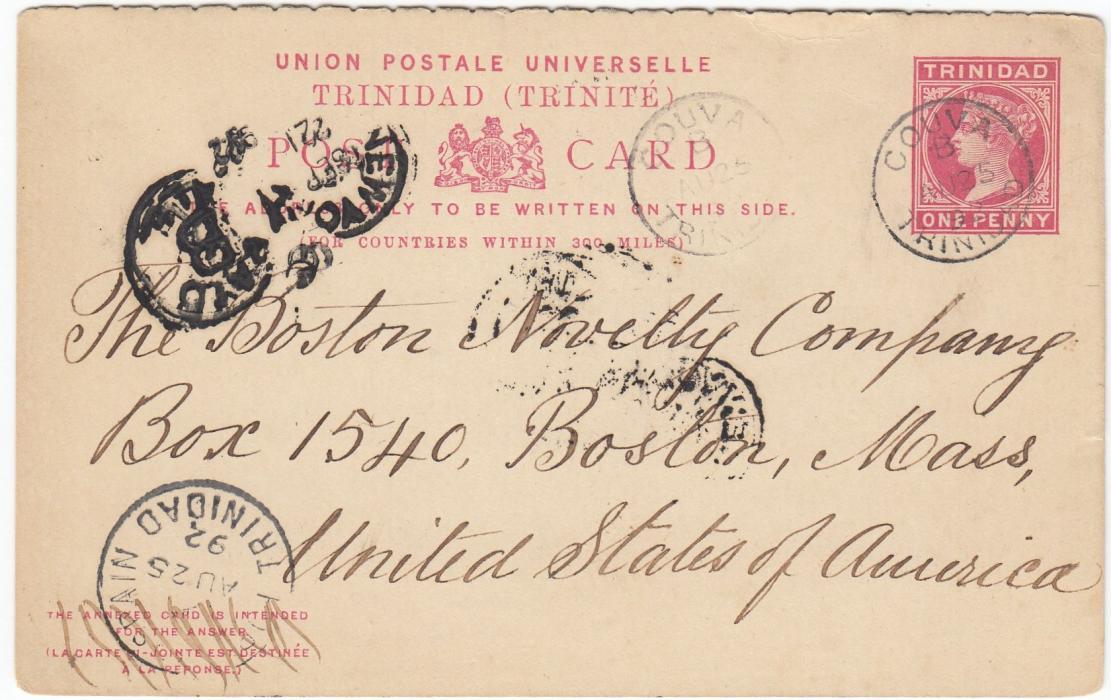 UNION POSTALE UNIVERSELLE
TRINIDAD (TRINITÉ)
POST CARD
ONLY TO BE WRITTEN ON THIS SIDE.
(FOR COUNTRIES WITHIN 300 MILES)
TRINIDAD
ONE PENNY
COUVA
B
AU 25
TRINIDAD
COUVA
B
AU 25
NEW YO
SEP
PAID
B
ALL
The Boston Novelty Company
Box 1540, Boston, Mass,
United States of America
TRINIDAD
92
AU 25
SPAIN
THE ANNEXED CARD IS INTENDED
FOR THE ANSWER.
(LA CARTE CI-JOINTE EST DESTINÉE
A LA REPONSE.)